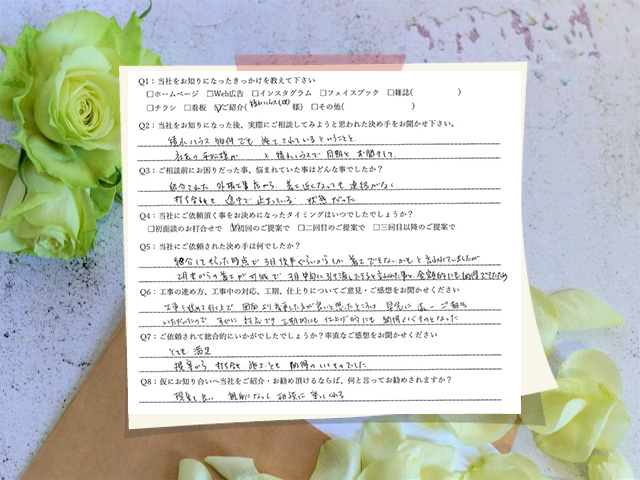 Q1：当社をお知りになったきっかけを教えて下さい
□ホームページ □Web広告 □インスタグラム □フェイスブック □雑誌( )
□チラシ □看板 ☑ご紹介( 様) □その他( )
Q2：当社をお知りになった後、実際にご相談してみようと思われた決め手をお聞かせ下さい。
積水ハウス物件でも施工されているということと
社長の 様が と積水ハウスで同期とお聞きして
Q3：ご相談前にお困りだった事、悩まれていた事はどんな事でしたか？
紹介された外構工事店から、着工近くなっても連絡がなく
打合せも途中で止まっている状態だった
Q4：当社にご依頼頂く事をお決めになったタイミングはいつでしたでしょうか？
□初面談のお打合せで ☑初回のご提案で □二回目のご提案で □三回目以降のご提案で
Q5：当社にご依頼された決め手は何でしたか？
紹介してもらった時点で3月後半ぐらいからしか着工できないかもと言われていましたが
2月末からの着工が可能で3月中旬に引き渡しできると言われた事と金額的にも納得できたから
Q6：工事の進め方、工事中の対応、工期、仕上りについてご意見・ご感想をお聞かせください
工事を進めて行く上で図面より変更した方が良いと思ったところは早急に ご報告
いただいたので すぐに対応でき工期的にも仕上げ的にも納得いくものとなった
Q7：ご依頼されて総合的にいかがでしたでしょうか？率直なご感想をお聞かせください
とても満足
提案から打合せ施工とも納得のいくものでした
Q8：仮にお知り合いへ当社をご紹介・お勧め頂けるならば、何と言ってお勧めされますか？
提案も良い 親身になって相談に乗ってくれる